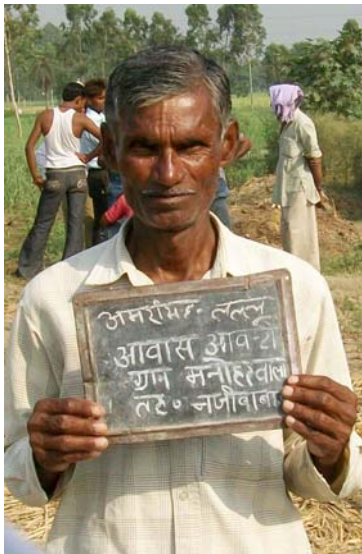 अमरसिंह- लल्लू
आवास आवंटी
ग्राम मनोहरवाला
तह० नजीबाबाद